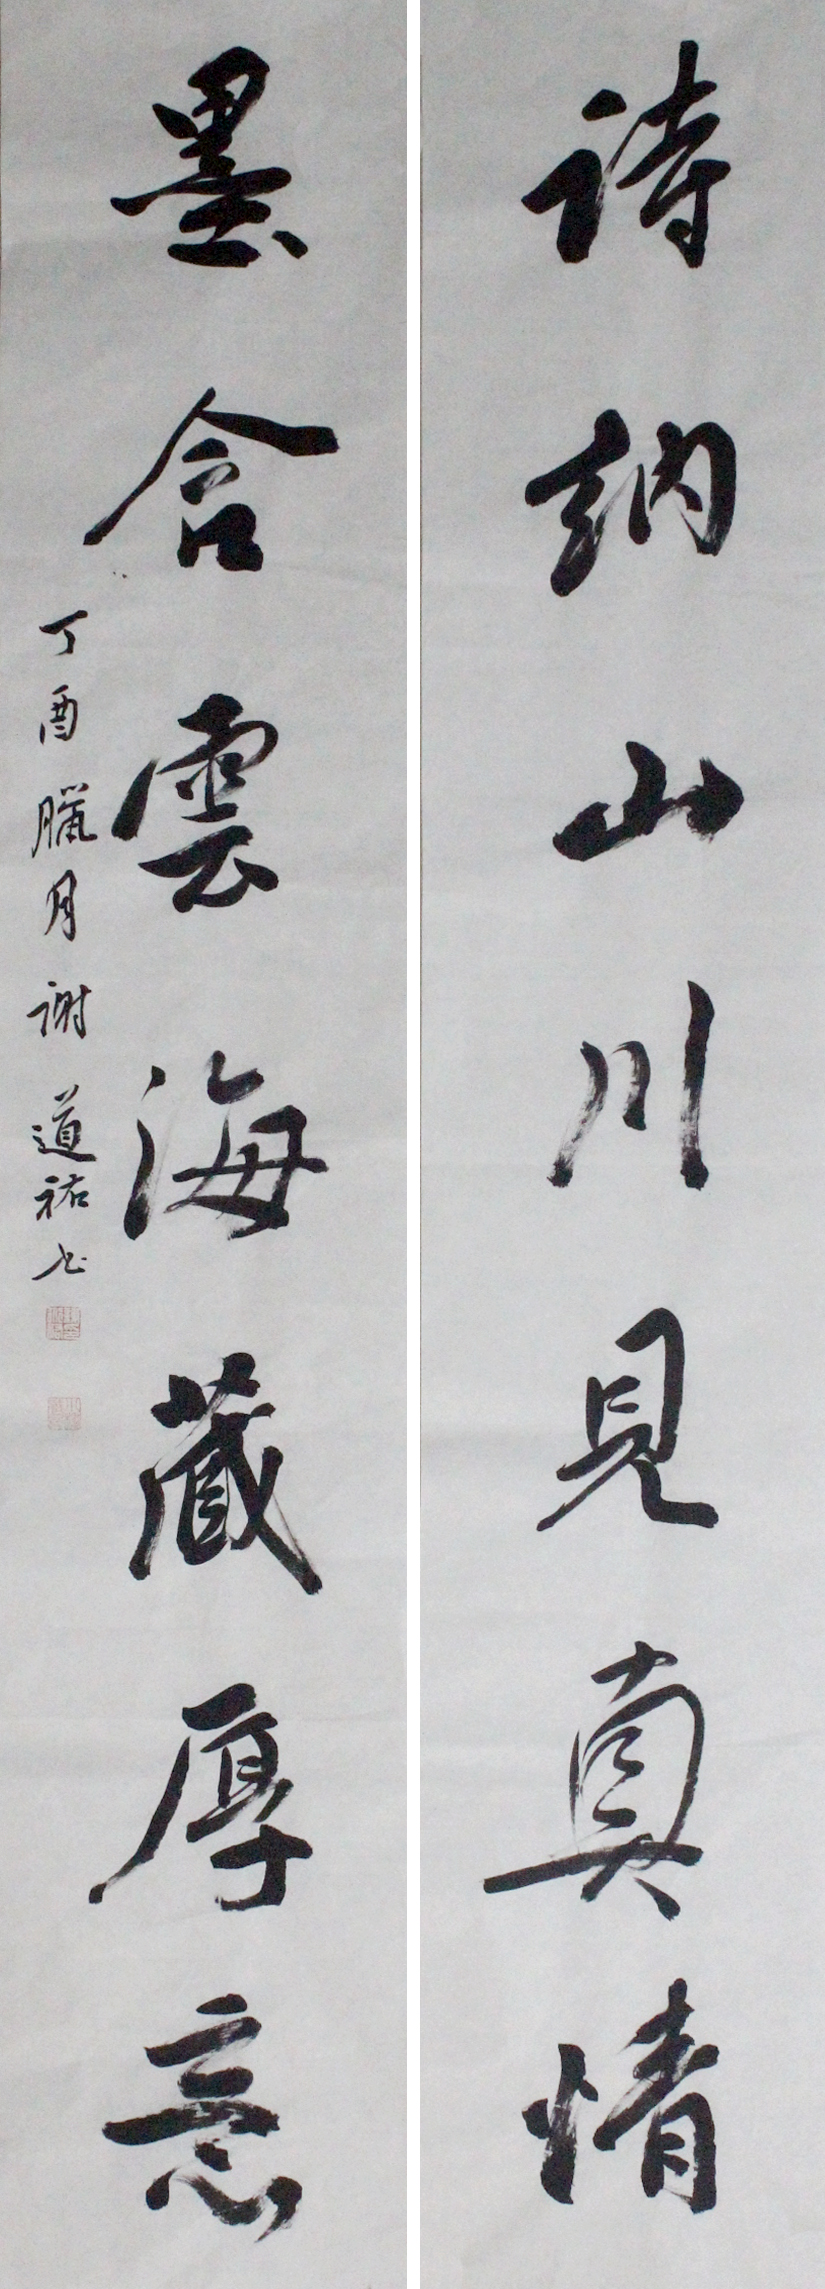 詩納山川見真情
墨含雲海藏厚意
丁酉臘月谢道祐书